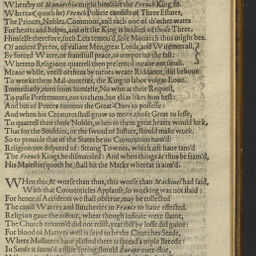 Whereby of Monarchia might himselfe the French King fit.
Whereas (quoth he) French Policie consists of Three Estates,
The Princes, Nobles, Commons, and each one of th'other waites
For healts and helpes, and of these King is builded of those Three.
Himselfe therefore, such Lets remou'd, sole Monarch thus might bee.
Of ancient Peeres, of valiant Men, great Lords, and Wisemen all,
By forced Warre, or fraudfull peace, so temporize the fall:
Whether Religions quarrell thou pretend, I meane not small.
Meane while, vntill of them by turnes weare Riddance, did behoue
To worke them Mal-contents, the King at labor vulgar Loue.
Immediatly, sum from himselfe, No what at their Request,
To passe Preferments, not to them, but else likes him best:
And but of Peeces ruinous the Great-Ones to possesse:
And when his Creatures shall grow to more, those Great to lesse,
To quarrell then those Nobles, when in them great hearts would lurk,
That for the Souldier, or the sword of Iustice, should make work.
So to prouide that of the States be on Conuention harv'd:
Religion not disposed of: Strong Townes, which oft haue iam'd
The French Kings, be dismantled: And when things as thus be scan'd,
His Maiestie (quoth he) shall hit the Marke whereat is aim'd.
WHen this, & worse than this, this worse than Machiuel had said,
With that Conuenticles Applause, so working was not staid:
For hence, as Accidents we shall obserue, may be collected
The ciuill Warres and Butcheries in France to haue effected.
Religion gaue the colour, whear though infinite were slaine,
The Church reformed did not resist, yea still by losse did gaine:
For blood of Martyrs well is sayd to be the Churches Seede,
Where Massacers haue plashed there is spread a triple Breede
In Sense it seem'd a sillie Spring should Europe outer-floe,